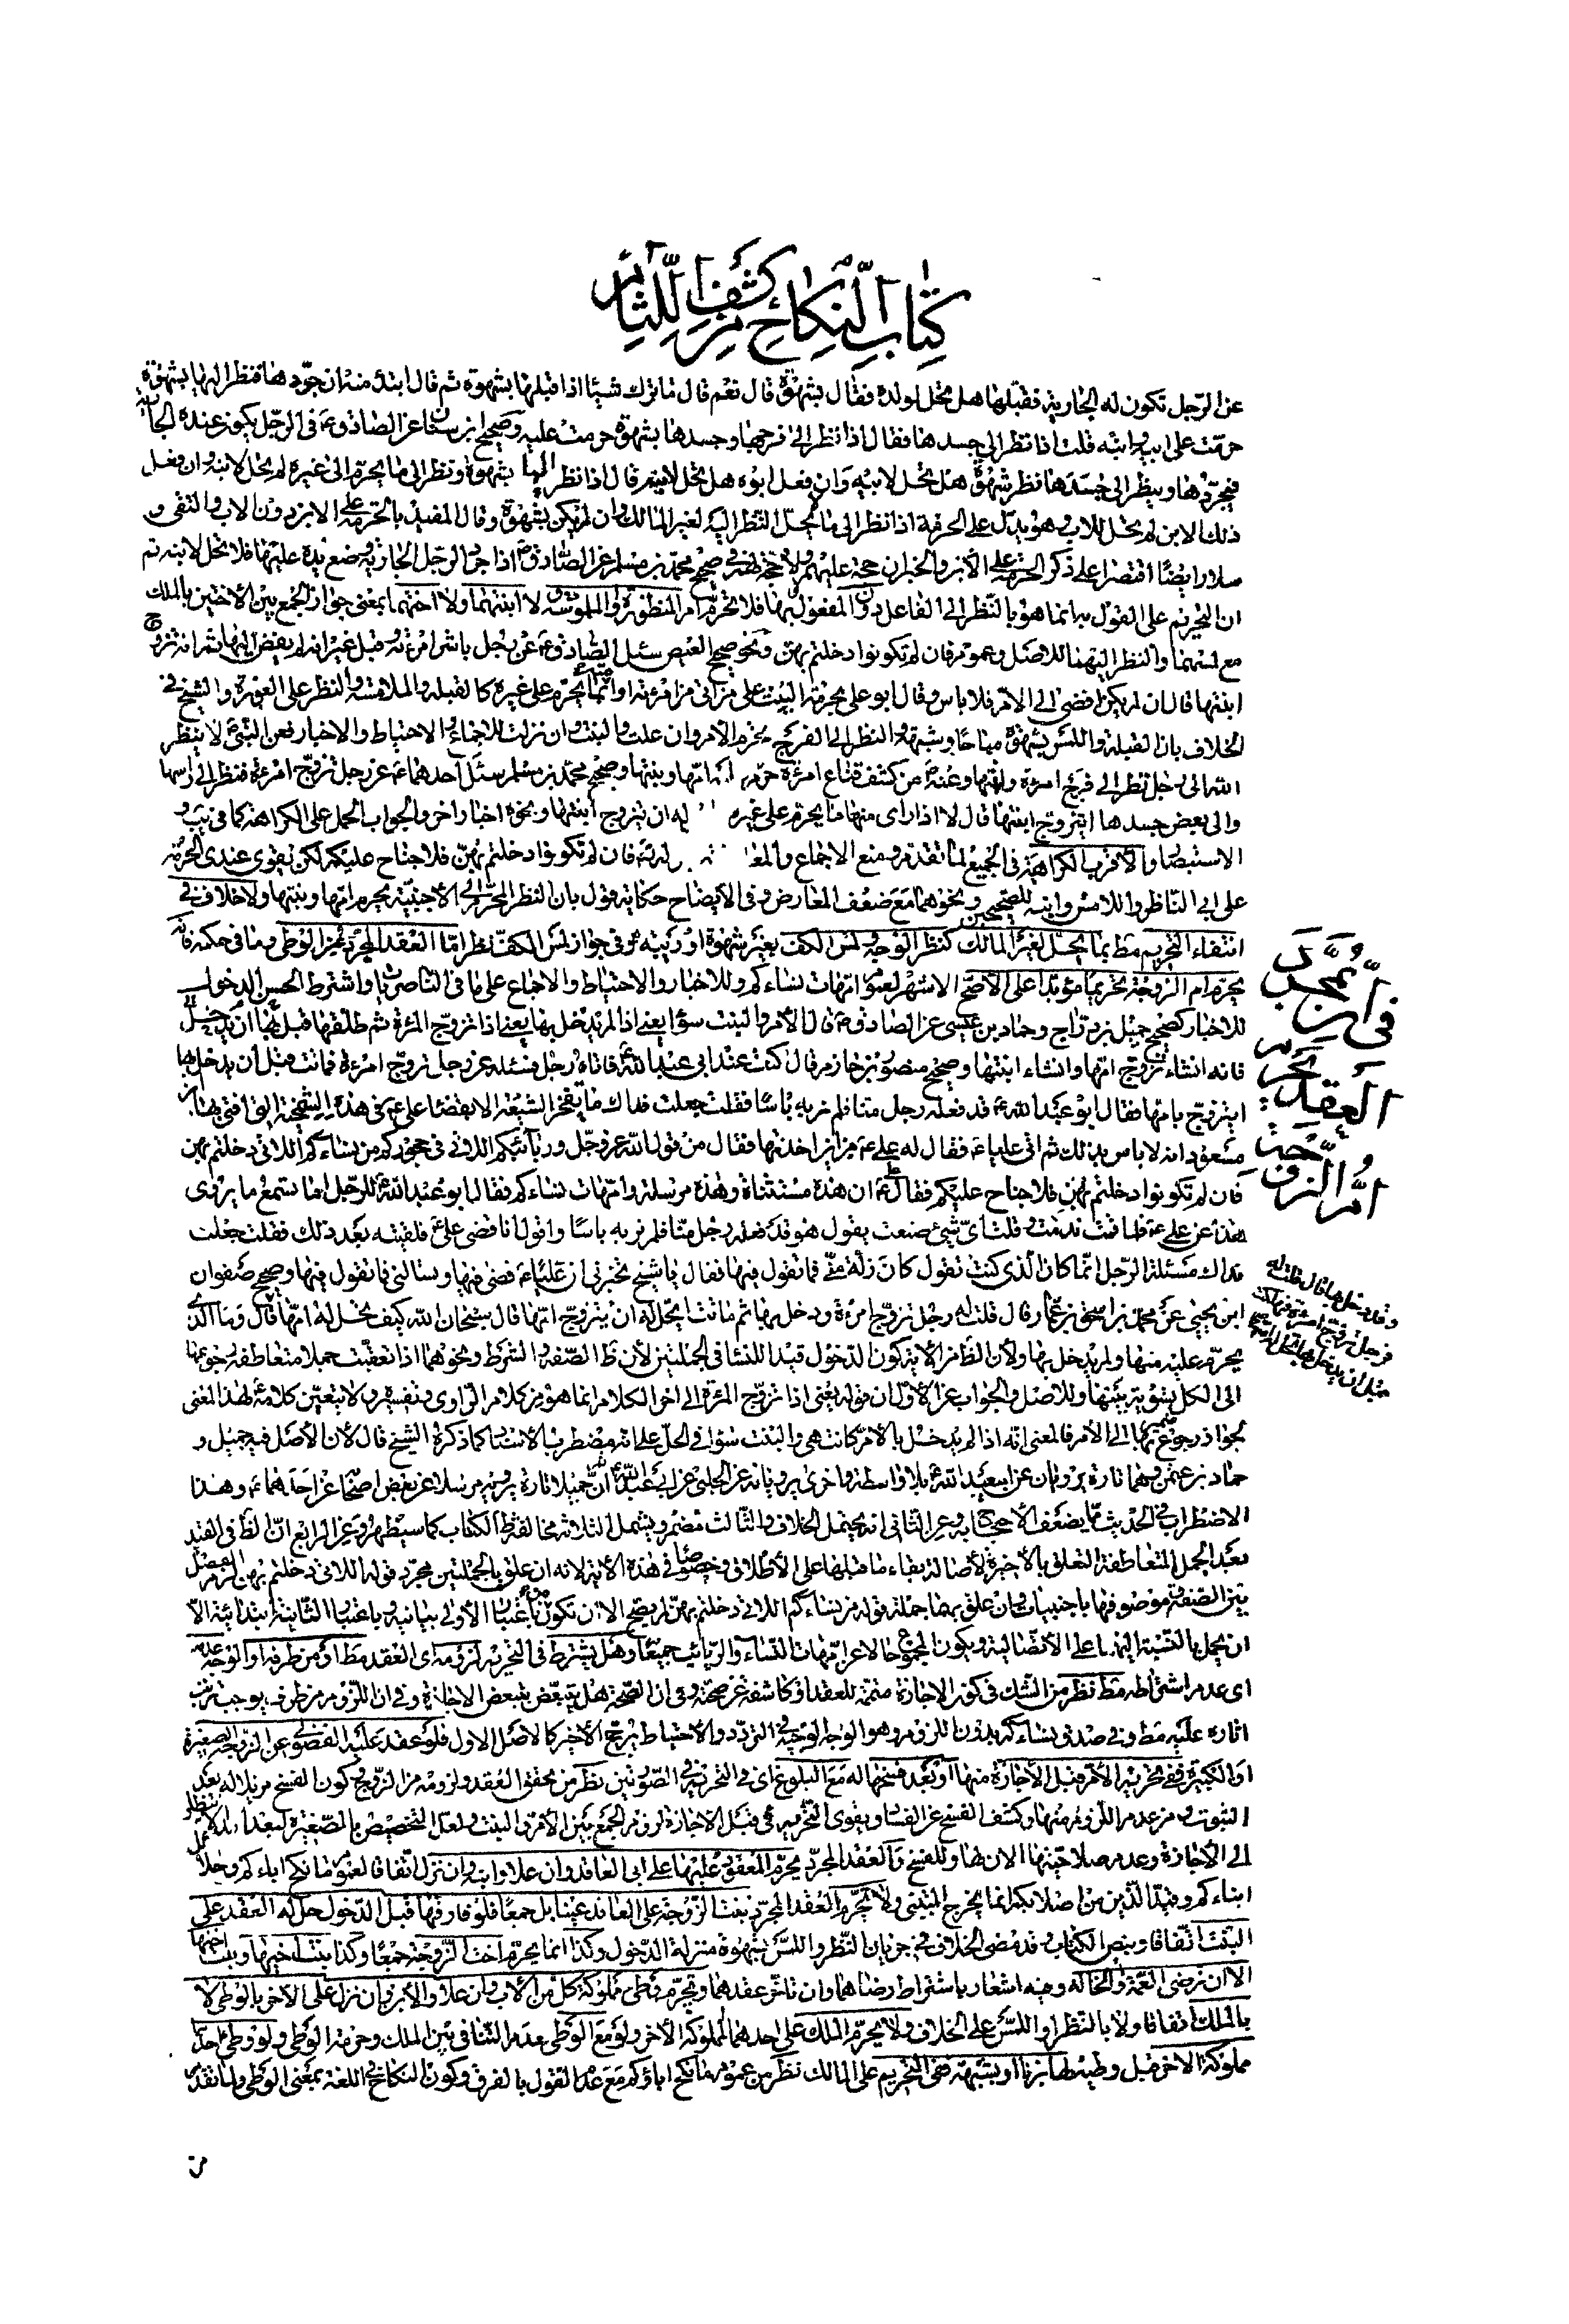 كتاب النكاح من كشف اللثام
عن الرجل تكون له الجارية فقبلها هل تحل لولده فقال بشهوة قال نعم قال ما ترك شيئا اذا قبلها بشهوة ثم قال ابتدء منه ان جردها فنظر اليها بشهوة
حرمت على ابيه وابنه قلت اذا نظر الى جسدها فقال اذا نظر الى فرجها وجسدها بشهوة حرمت عليه وصحيح ابن سنان عن الصادق ع في الرجل يكون عنده الجارية
فيجردها وينظر الى جسدها نظر شهوة هل تحل لابيه وان فعل ابوه هل تحل لابنه قال اذا نظر اليها بشهوة ونظر الى ما يحرم الى غيره لم تحل لابنه وان فعل
ذلك الابن لم تحل للاب وهو يدل على الحرمة اذا نظر الى ما لا يحل النظر اليه لغير المالك وان لم يكن بشهوة وقال المفيد بالحرمة على الابن دون الاب والتقى و
سلار ايضا اقتصرا على ذكر الحرمة على الابن والخبران حجة عليهم ولا حجة لهم في صحيح محمد بن مسلم عن الصادق ع اذا جرد الرجل الجارية ووضع يده عليها فلا تحل لابنه ثم
ان التحريم على القول به انما هو بالنظر الى الفاعل دون المفعول بها فلا تحرم ام المنظورة والملموسة ولا ابنتهما ولا اختهما بمعنى جواز الجمع بين الاختين بالملك
مع لمسهما والنظر اليهما للاصل وعموم فان لم تكونوا دخلتم بهن ونحو صحيح العيص سئل الصادق ع عن رجل باشر امرءته وقبل غير انه لم يفض اليها ثم انه تزوج
ابنتها قال ان لم يكن افضى الى الام فلا باس وقال ابو على بحرمة البنت على من اتى من امرءته او امته ما يحرم على غيره كالقبلة والملامسة والنظر على العورة والشيخ في
الخلاف بان القبلة واللمس بشهوة مباحا وشبهة والنظر الى الفرج يحرم الام وان علت والبنت وان نزلت للاجماع والاحتياط والاخبار فعن النبى ص لا ينظر
الله الى رجل نظر الى فرج امرءة وابنتها وعنه ص من كشف قناع امرءة حرم امها وبنتها وصحيح محمد بن مسلم سئل احدهما ع عن رجل تزوج امرءة فنظر الى راسها
والى بعض جسدها ايتزوج ابنتها قال لا اذا راى منها ما يحرم على غيره له ان يتزوج ابنتها ونحوه اخبار اخر والجواب الحمل على الكراهة كما في يب و
الاستبصار والاقرب الكراهية في الجميع لما تقدم ومنع الاجماع فان لم تكونوا دخلتم بهن فلا جناح عليكم لكن يقوى عندى الحرمة
على ابى الناظر واللامس وابنه للصحيحين ونحوهما مع ضعف المعارض وفى الايضاح حكاية قول بان النظر المحرم الى الاجنبية يحرم امها وبنتها ولا خلاف في
انتفاء التحريم مط بما يحل لغير المالك كنظر الوجه ولمس الكف بغير شهوة او ريبة وفى جواز لمس الكف نظر اما العقد المجرد عن الوطى وما في حكمه فانه
يحرم ام الزوجة تحريما مؤبدا على الاصح الاشهر لعموم امهات نساءكم وللاخبار والاحتياط والاجماع على ما في الناصريات واشترط الحسن الدخول
للاخبار كصحيح جميل بن دراج وحماد بن عيسى عن الصادق ع قال الام والبنت سواء يعنى اذا لم يدخل بها يعنى اذا تزوج المرءة ثم طلقها قبل ان يدخل بها
فانه ان شاء تزوج امها وان شاء ابنتها وصحيح منصور بن حازم قال كنت عند ابى عبد الله ع فاتاه رجل فسئله عن رجل تزوج امرءة فماتت قبل ان يدخل بها
ايتزوج بامها فقال ابو عبد الله ع قد فعله رجل منا فلم نر به باسا فقلت جعلت فداك ما يفخر الشيعة الا بقضاء على ع في هذه الشمخية التى افتى بها ابن
مسعود انه لا باس بذلك ثم اتى عليا ع فقال له على ع من اين اخذتها فقال من قول الله عز وجل وربائبكم اللاتى في حجوركم من نساءكم اللاتى دخلتم بهن
فان لم تكونوا دخلتم بهن فلا جناح عليكم فقال ع ان هذه مستثناة وهذه مرسلة وامهات نساءكم فقال ابو عبد الله ع للرجل اما تسمع ما يروى
هذا عن على ع فلما قمت ندمت وقلت اى شىء صنعت يقول هو قد فعله رجل منا فلم نر به باسا واقول انا قضى على ع فلقيته بعد ذلك فقلت جعلت
فداك مسئلة الرجل انما كان الذى كنت تقول كان زلة منى فما تقول فيها فقال يا شيخ تخبرنى ان عليا ع قضى فيها وتسالنى فما تقول فيها وصحيح صفوان
ابن يحيى عن محمد بن اسحق بن عمار قال قلت له رجل تزوج امرءة ودخل بها ثم ماتت ايحل له ان يتزوج امها قال سبحان الله كيف تحل له امها قال وما الذى
يحرم عليه منها ولم يدخل بها ولان الظاهر الاية كون الدخول قيدا للنساء في الجملتين لان ظ الصفة والشرط ونحوهما اذا تعقبت جملا متعاطفة رجوعها
الى الكل بتسوية بينها وللاصل والجواب عن الاول ان قوله يعنى اذا تزوج المرءة الى اخر الكلام انما هو من كلام الراوى وتفسيره ولا يتعين كلامه ع لهذا المعنى
لجواز رجوع ضمير بها الى الام فالمعنى انه اذا لم يدخل بالام كانت هى والبنت سواء في الحل على انه مضطرب الاسناد كما ذكره الشيخ قال لان الاصل فيه جميل و
حماد بن عثمن وهما تارة يرويان عن ابى عبد الله ع بلا واسطة واخرى يرويانه عن الحلبى عن ابى عبد الله ع ثم ان جميلا تارة يرويه مرسلا عن بعض اصحابنا عن احدهما ع وهذا
الاضطراب في الحديث مما يضعف الاحتجاج به وعن الثانى انه يحتمل الخلاف والثالث مضمر ويشمل الثلاثة مخالفة ظ الكتاب كما سيظهر وعن الرابع ان الظ في القيد
بعد الجمل المتعاطفة التعلق بالاخيرة لاصالة بقاء ما قبلها على الاطلاق وخصوصا في هذه الاية لانه ان علق بالجملتين مجرد قوله اللاتى دخلتم بهن لزم الفصل
بين الصفة وموصوفها باجنبيات وان علق بهما جملة قوله من نساءكم اللاتى دخلتم بهن لم يصح الا ان تكون من باعتبار الاولى بيانية وباعتبار الثانية ابتدائية الا
ان يحمل بالنسبة اليهما على الاتصالية ويكون المجموع حالا عن امهات النساء والربائب جميعا وهل يشترط في التحريم لزومه اى العقد مط او من طرفه او الوجه عدمه
اى عدم اشتراطه مط نظر من الشك في كون الاجازة متممة للعقد او كاشفة عن صحته وفى ان الصحة هل تتبعض بتبعض الاجازة وفى ان اللزوم من طرف يوجب ترتب
اثاره عليه مط وفى صدق نساءكم بدون اللزوم وهو الوجه الوجيه في التردد والاحتياط يرجح الاخير كالاصل الاول فلو عقد عليه الفضولى عن الزوجة الصغيرة
او الكبيرة ففى تحريم الام قبل الاجازة منها او بعد فسخها له مع البلوغ اى في التحريم في الصورتين نظر من تحقق العقد ولزومه من الزوج وكون الفسخ مزيلا له بعد
الثبوت ومن عدم اللزوم منها وكشف الفسخ عن الفساد ويقوى التحريم في قبل الاجازة لزوم الجمع بين الام والبنت ولعل التخصيص بالصغيرة لبعد
الى الاجازة وعدم صلاحيتها الان لها وللفسخ وبالعقد المجرد يحرم المعقود عليها على ابى العاقد وان علا وابنه وان نزل اتفاقا لعموم ما نكح اباءكم وحلائل
ابناءكم وقيد الذين من اصلابكم انما يخرج المتبنى ولا يحرم العقد المجرد بنت الزوجة على العاقد عينا بل جمعا فلو فارقها قبل الدخول حل له العقد على
البنت اتفاقا وبنص الكتاب وقد مضى الخلاف في جريان النظر واللمس بشهوة منزلة الدخول وكذا انما يحرم اخت الزوجة جمعا وكذا بنت اخيها وبنت اختها
الا ان ترضى العمة والخالة وفيه اشعار باشتراط رضاهما وان تاخر عقدهما وتحرم وطى مملوكة كل من الاب وان علا والابن وان نزل على الاخر بالوطى لا
بالملك اتفاقا ولا بالنظر او اللمس على الخلاف ولا يحرم الملك على احدهما المملوكة الاخر ولو مع الوطى لعدم التنافى بين الملك وحرمة الوطى ولو وطى احدهما
مملوكة الاخر قبل وطيه لها بزنا او بشبهة ففى التحريم على المالك نظر من عموم ما نكح اباؤكم مع عدم القول بالفرق وكون النكاح في اللغة بمعنى الوطى ولما تقدم
في ان مجرد
العقد يحرم
ام الزوجة
وقد دخل بها قال قلت له
فرجل تزوج امرءة فهلكت
قبل ان يدخل بها تحل له امها